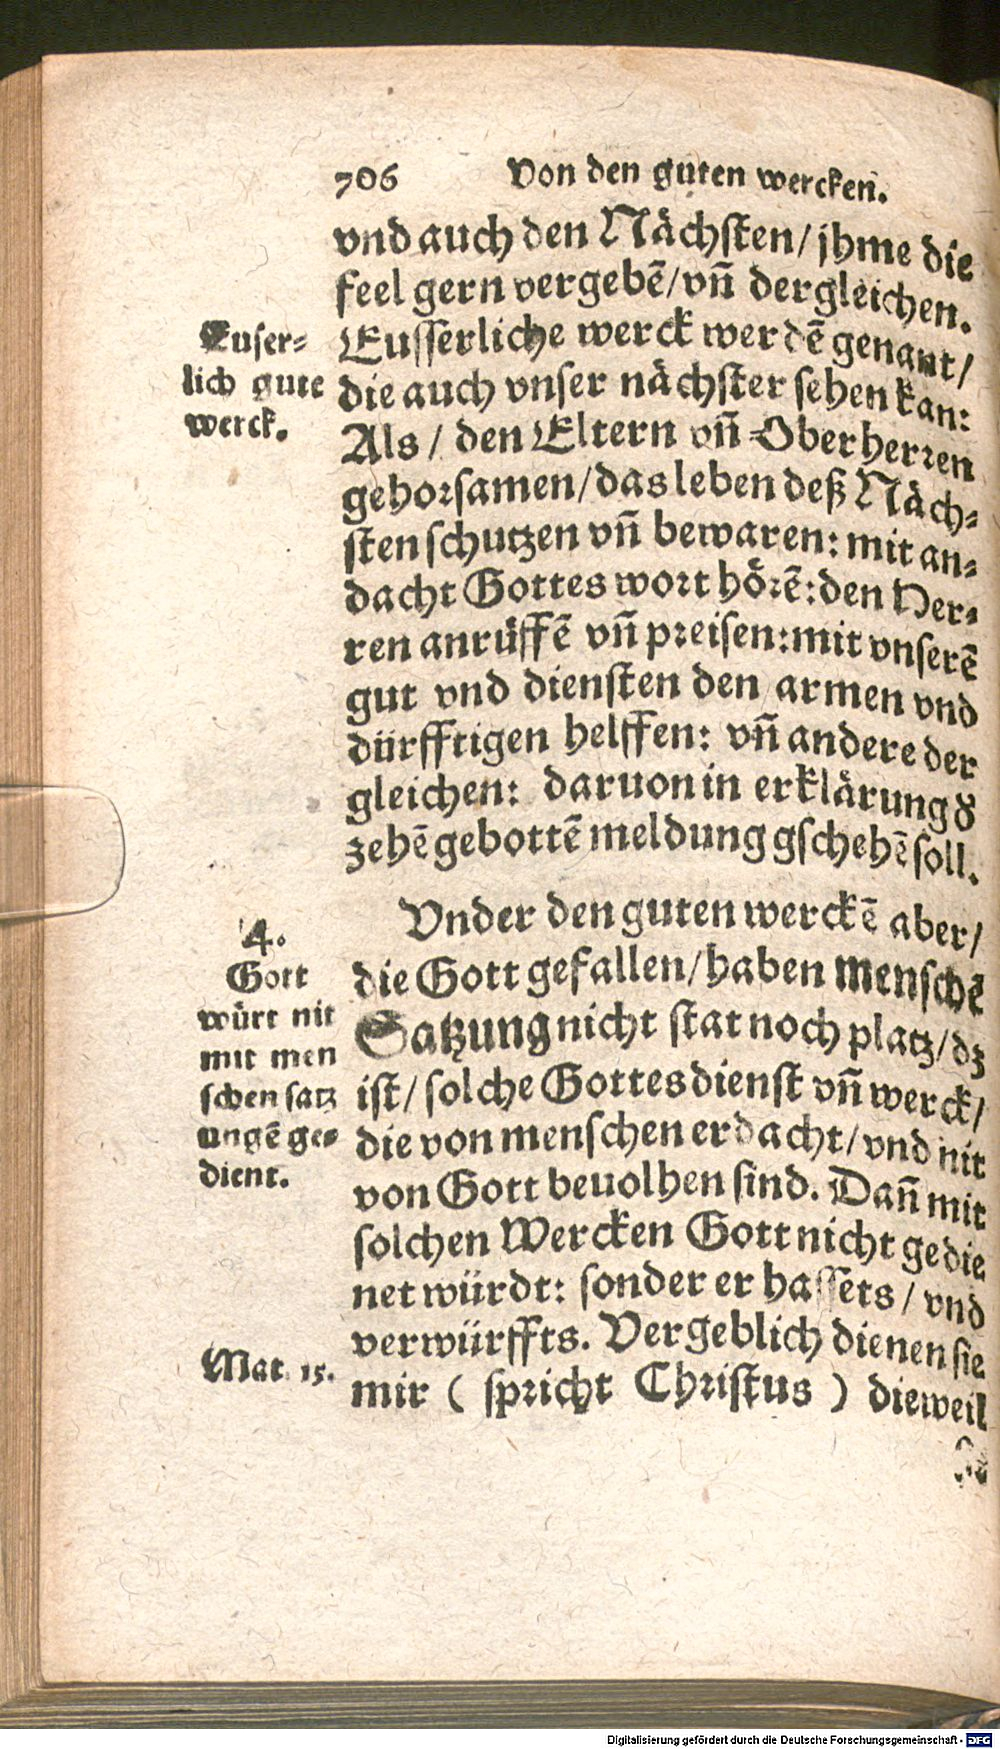 706 Von den guten wercken.
vnd auch den Nächsten/ jhme die
feel gern vergebẽ/ vñ dergleichen.
Euser-
lich gute
werck.
Eusserliche werck werdẽ genant/
die auch vnser nächster sehen kan:
Als/ den Eltern vñ Oberherren
gehorsamen/ das leben deß Näch-
sten schutzen vñ bewaren: mit an-
dacht Gottes wort hörẽ: den Her-
ren anrüffẽ vñ preisen: mit vnserẽ
gut vnd diensten den armen vnd
dürfftigen helffen: vñ andere der
gleichen: daruon in erklärung d
zehẽ gebottẽ meldung gschehẽ soll.
4.
Gott
würt nit
mit men
schen satz
ungẽ ge-
dient.
Vnder den guten werckẽ aber/
die Gott gefallen/ haben menschẽ
Satzung nicht stat noch platz/ dz
ist/ solche Gottesdienst vñ werck/
die von menschen erdacht/ vnd nit
von Gott beuolhen sind. Dañ mit
solchen Wercken Gott nicht gedie
net würdt: sonder er hassets/ vnd
verwürffts. Vergeblich dienen sie
Mat. 15.
mir ( spricht Christus ) dieweil
Digitalisierung gefördert durch die Deutsche Forschungsgemeinschaft - DFG